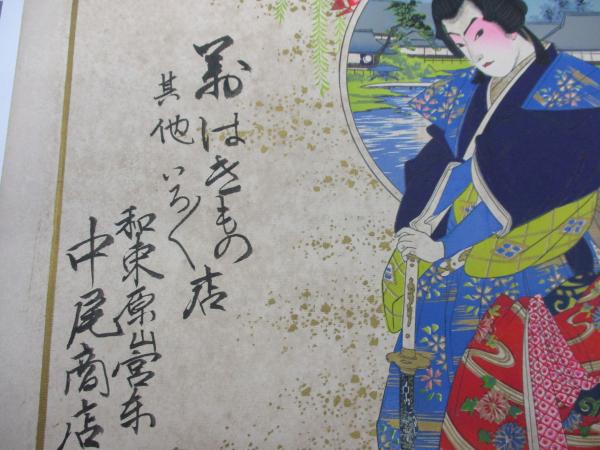 萬はきもの店
其他いろ〱
和束原山宮東
中尾商店